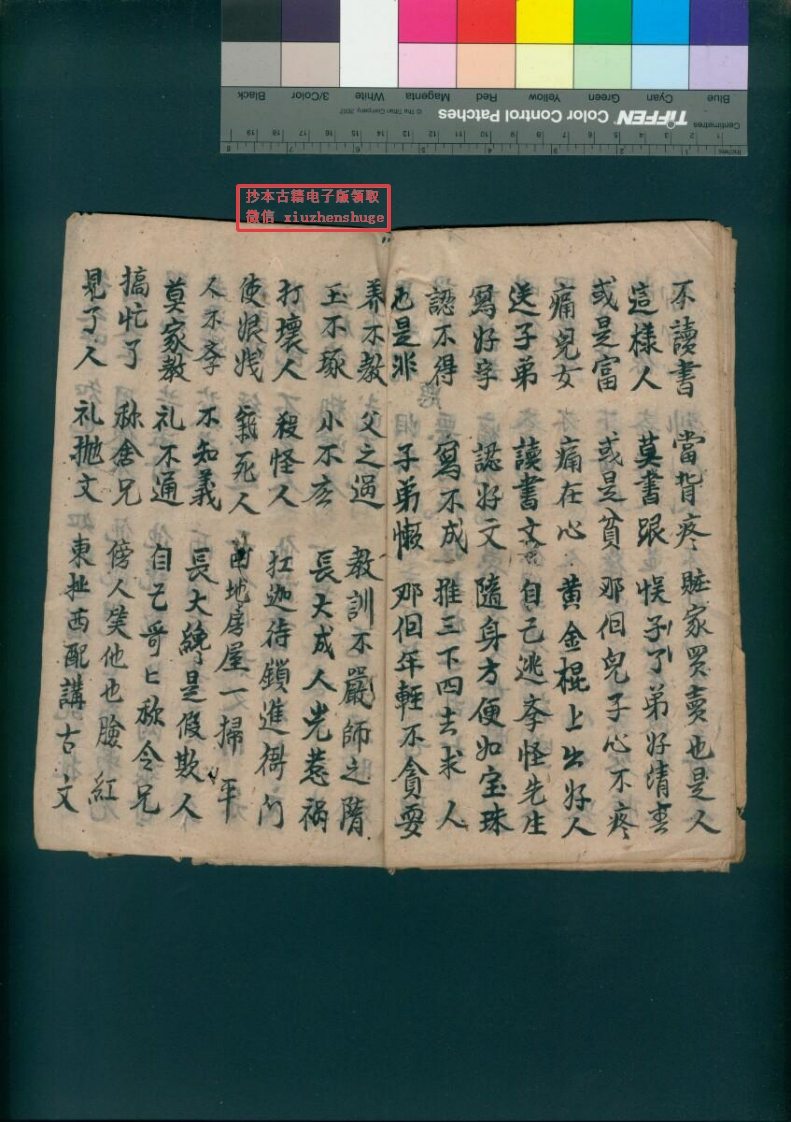 Blue
Cyan
Green
Yellow
Red
Magenta
White
3/Color
Black
TIFFEN Color Control Patches
© The Tiffen Company, 2007
Centimetres
Inches
抄本古籍电子版领取
微信 xiuzhenshuge
不讀書 當背疼 賍家買賣也是人
這樣人 莫書跟 悮了子弟好情書
或是富 或是貧 那個兒子心不疼
痛兒女 痛在心 黄金棍上出好人
送子弟 讀書文 自己逃斈怪先生
寫好字 認好文 隨身方便如宝珠
認不得 寫不成 推三下四去求人
也是非 子弟懒 那個年輕不貪耍
养不教 父之過 教訓不嚴師之隋
玉不琢 小不 長大成人光惹祸
打壞人 殺怪人 扛迦待鎖進衙门
使娘戋 死人 地房屋一掃平
人不斈 不知義 長大終是假欺人
莫家教 礼不通 自己哥〻称令兄
搞忙了 称舍兄 傍人笑他也臉紅
見了人 礼抛文 東扯西配講古文